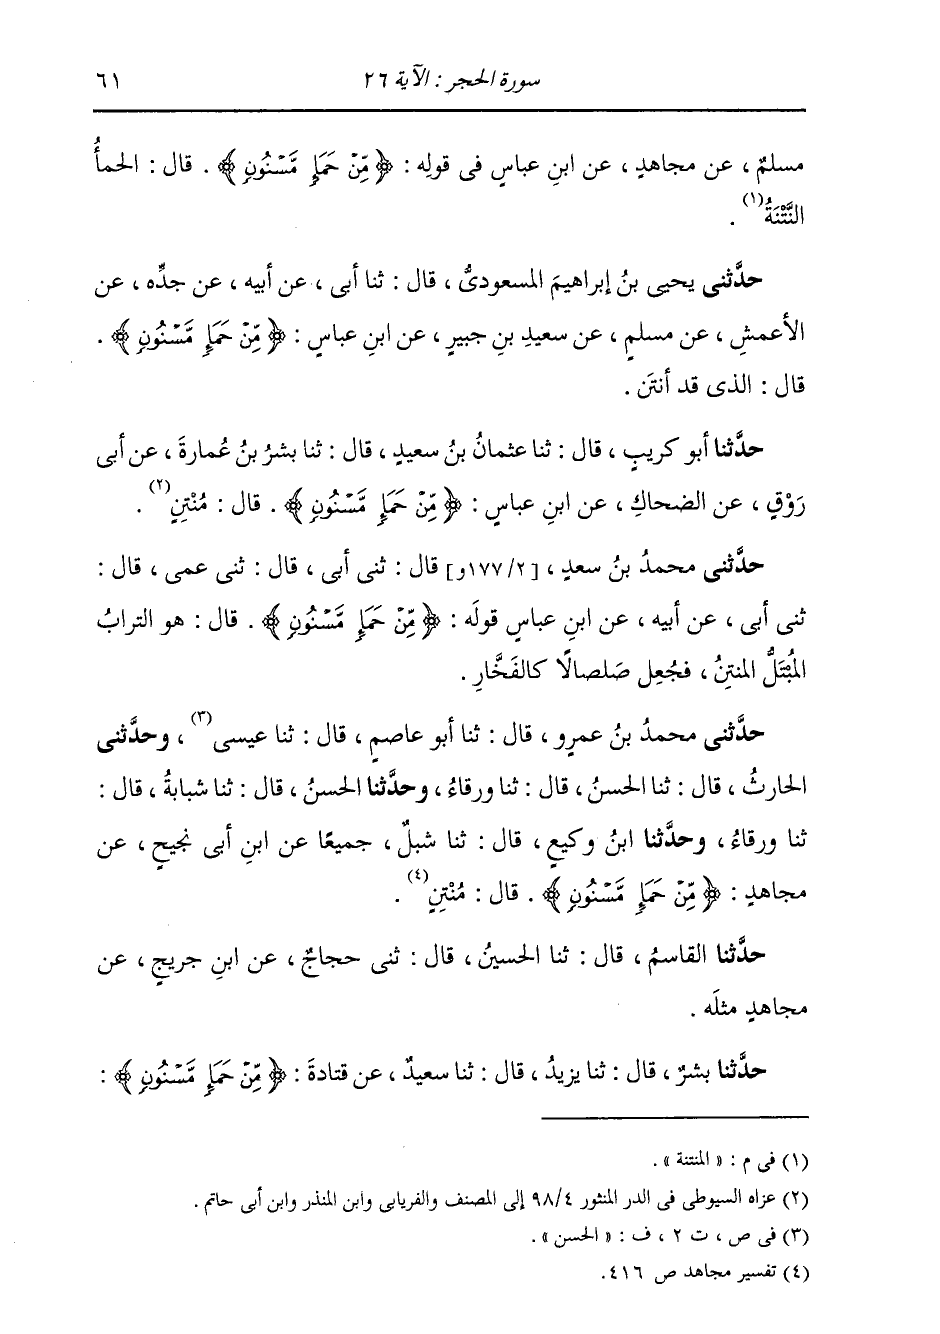 سورة الحجر : الآية ٢٦
٦١
مسلمٌ ، عن مجاهدٍ ، عن ابنِ عباسٍ فى قولِه : ﴿ مِّنْ حَمَإٍ مَّسْنُونٍ ﴾ . قال : الحمأُ
النَّتْنَةُ(١) .
حدَّثنى يحيى بنُ إبراهيمَ المسعودىُّ ، قال : ثنا أبى ، عن أبيه ، عن جدِّه ، عن
الأعمشِ ، عن مسلمٍ ، عن سعيدِ بنِ جبيرٍ ، عن ابنِ عباسٍ : ﴿ مِّنْ حَمَإٍ مَّسْنُونٍ ﴾ .
قال : الذى قد أنتَن .
حدَّثنا أبو كريبٍ ، قال : ثنا عثمانُ بنُ سعيدٍ ، قال : ثنا بشرُ بنُ عُمارةَ ، عن أبى
رَوْقٍ ، عن الضحاكِ ، عن ابنِ عباسٍ : ﴿ مِّنْ حَمَإٍ مَّسْنُونٍ ﴾ . قال : مُنْتِنٍ(٢) .
حدَّثنى محمدُ بنُ سعدٍ ، [١٧٧/٢و] قال : ثنى أبى ، قال : ثنى عمى ، قال :
ثنى أبى ، عن أبيه ، عن ابنِ عباسٍ قولَه : ﴿ مِّنْ حَمَإٍ مَّسْنُونٍ ﴾ . قال : هو الترابُ
المُبْتَلُّ المنتِنُ ، فجُعِل صَلصالًا كالفَخَّارِ .
حدَّثنى محمدُ بنُ عمرٍو ، قال : ثنا أبو عاصمٍ ، قال : ثنا عيسى(٣) ، وحدَّثنى
الحارثُ ، قال : ثنا الحسنُ ، قال : ثنا ورقاءُ ، وحدَّثنا الحسنُ ، قال : ثنا شبابةُ ، قال :
ثنا ورقاءُ ، وحدَّثنا ابنُ وكيعٍ ، قال : ثنا شبلٌ ، جميعًا عن ابنِ أبى نجيحٍ ، عن
مجاهدٍ : ﴿ مِّنْ حَمَإٍ مَّسْنُونٍ ﴾ . قال : مُنْتِنٍ(٤) .
حدَّثنا القاسمُ ، قال : ثنا الحسينُ ، قال : ثنى حجاجٌ ، عن ابنِ جريجٍ ، عن
مجاهدٍ مثلَه .
حدَّثنا بشرٌ ، قال : ثنا يزيدُ ، قال : ثنا سعيدٌ ، عن قتادةَ : ﴿ مِّنْ حَمَإٍ مَّسْنُونٍ ﴾ :
(١) فى م : « المنتنة » .
(٢) عزاه السيوطى فى الدر المنثور ٩٨/٤ إلى المصنف والفريابى وابن المنذر وابن أبى حاتم .
(٣) فى ص ، ت ٢ ، ف : « الحسن » .
(٤) تفسير مجاهد ص ٤١٦.